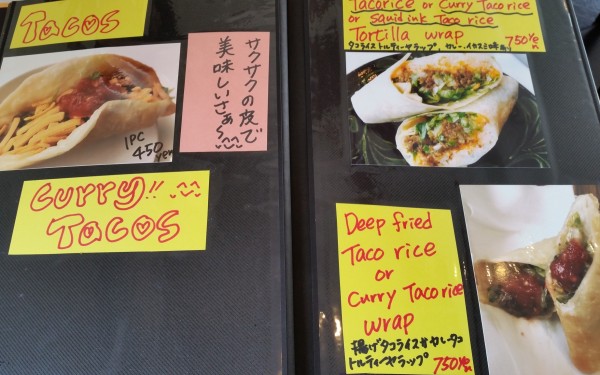 TACOS
1PC
450 yen
サクサクの皮で
美味しいさぁ〜
CURRY!!
TACOS
Tacorice or Curry Taco rice
or squid ink Taco rice
Tortilla wrap
750 Yen
タコライストルティーヤラップ、カレー、イカスミ
Deep fried
Taco rice
or
Curry Taco rice
wrap
揚げタコライスorカレータコ
トルティーヤラップ 750 Yen